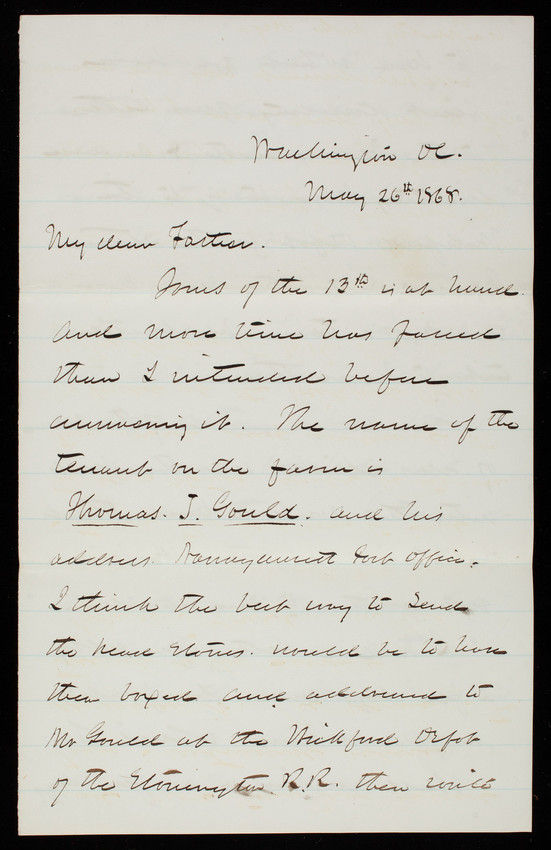 Washington DC.
May 26th 1868.
My dear Father.
Yours of the 13th is at hand.
and more time has passed
than I intended before
answering it. The name of the
tenant on the farm is
Thomas. J. Gould. and his
address. Narragansett Post office.
I think the best way to send
the head stones. would be to have
them boxed and addressed to
Mr Gould at the Wickford Depot
of the Stonington R.R. then write